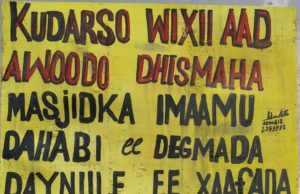 KUDARSO WIXII AAD
AWOODO DHISMAHA
MASJIDKA IMAAMU
DAHABI EE DEGMADA
DAYNIILE EE XAAFADA